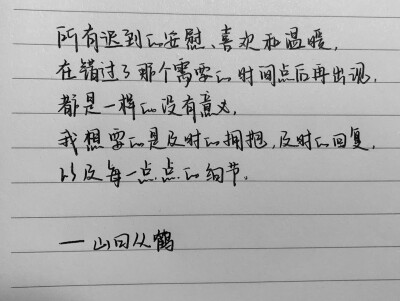 所有迟到的安慰、喜欢和温暖，
在错过了那个需要的时间点后再出现，
都是一样的没有意义，
我想要的是及时的拥抱，及时的回复，
以及每一点点的细节。
——山曰从鹤